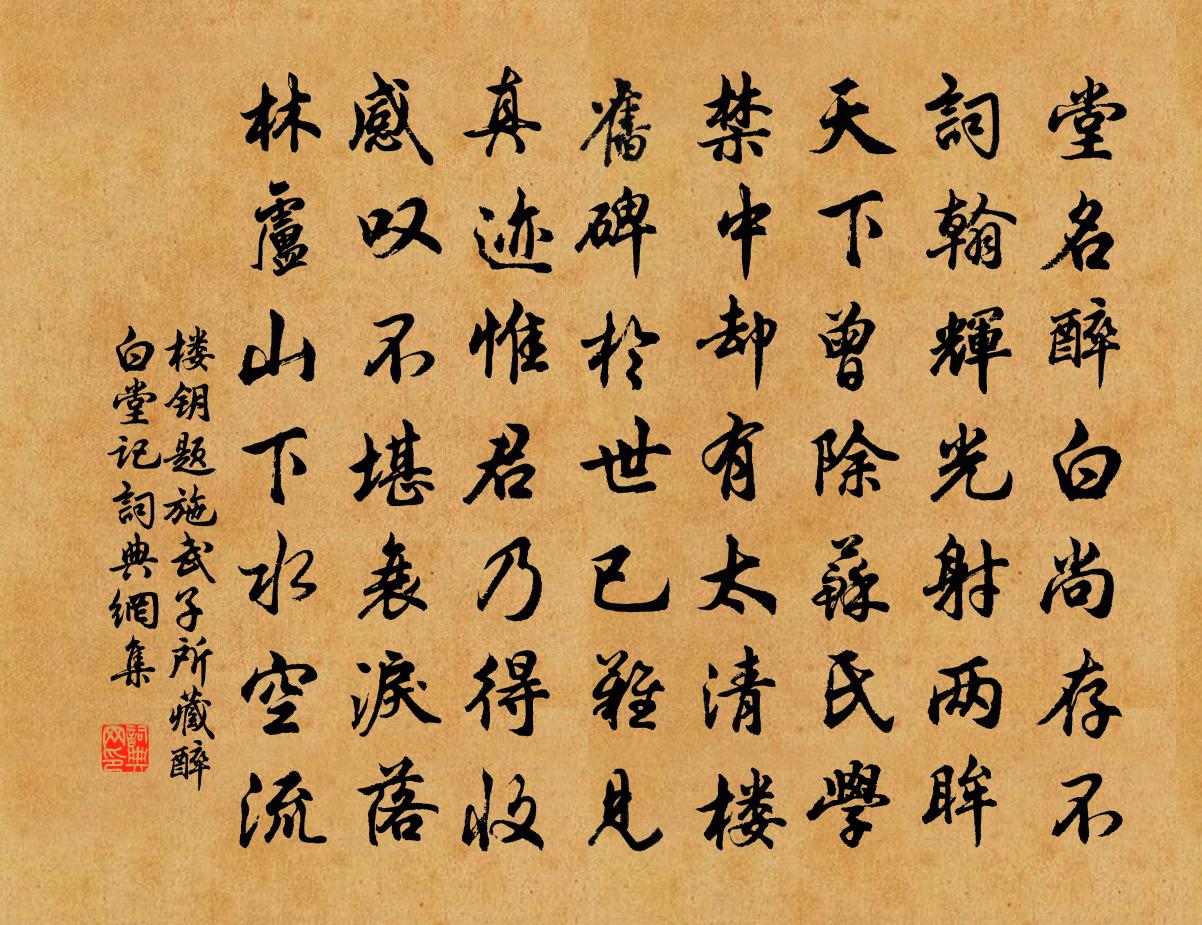 堂名醉白尚存不
詞翰輝光射两眸
天下曾除蘇氏學
禁中却有太清楼
舊碑於世已難見
真迹惟君乃得收
感叹不堪衰淚落
林廬山下水空流
楼钥题施武子所藏醉
白堂记詞典網集
詞典
网印